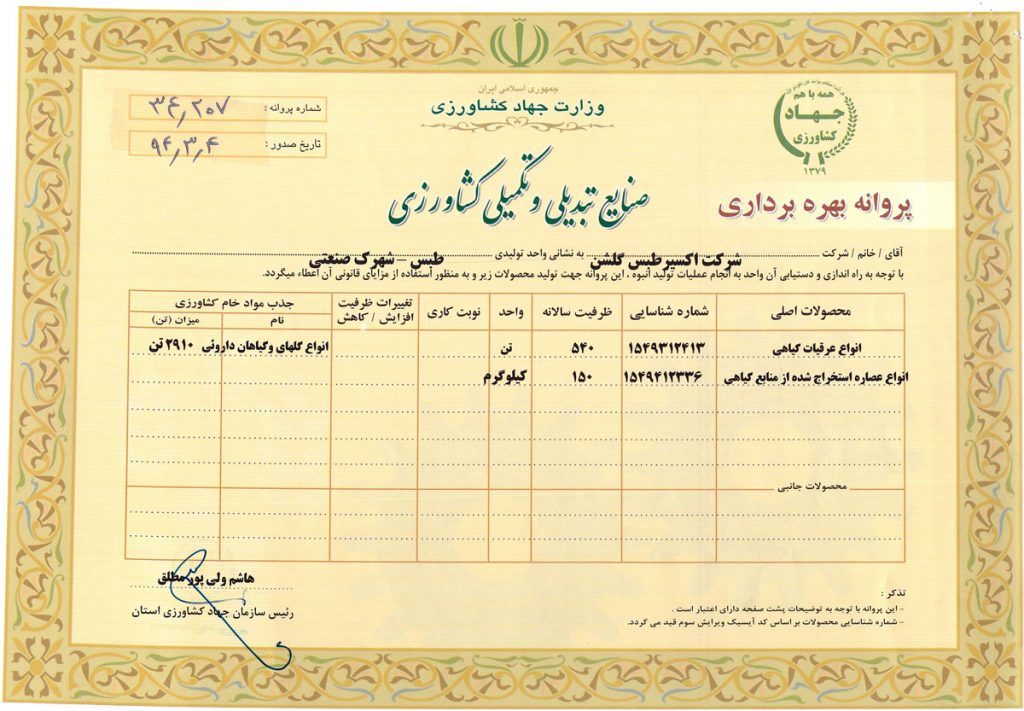 جمهوری اسلامی ایران
وزارت جهاد کشاورزی
همه با هم
جهاد
کشاورزی
۱۳۷۹
شماره پروانه : ۳۴٫۲۰۷
تاریخ صدور : ۹۴٫۳٫۴
صنایع تبدیلی و تکمیلی کشاورزی
پروانه بهره برداری
آقای / خانم / شرکت شرکت اکسیرطبس گلشن به نشانی واحد تولیدی طبس – شهرک صنعتی
با توجه به راه اندازی و دستیابی آن واحد به انجام عملیات تولید انبوه ، این پروانه جهت تولید محصولات زیر و به منظور استفاده از مزایای قانونی آن اعطاء میگردد.
محصولات اصلی شماره شناسایی ظرفیت سالانه واحد نوبت کاری تغییرات ظرفیت افزایش / کاهش جذب مواد خام کشاورزی
نام میزان (تن)
انواع عرقیات گیاهی ۱۵۴۹۳۱۲۴۱۳ ۵۴۰ تن انواع گلهای وگیاهان داروئی ۲۹۱۰ تن
انواع عصاره استخراج شده از منابع گیاهی ۱۵۴۹۴۱۲۳۳۶ ۱۵۰ کیلوگرم
محصولات جانبی
هاشم ولی پور مطلق
رئیس سازمان جهاد کشاورزی استان
تذکر :
– این پروانه با توجه به توضیحات پشت صفحه دارای اعتبار است .
– شماره شناسایی محصولات بر اساس کد آیسیک ویرایش سوم قید می گردد.